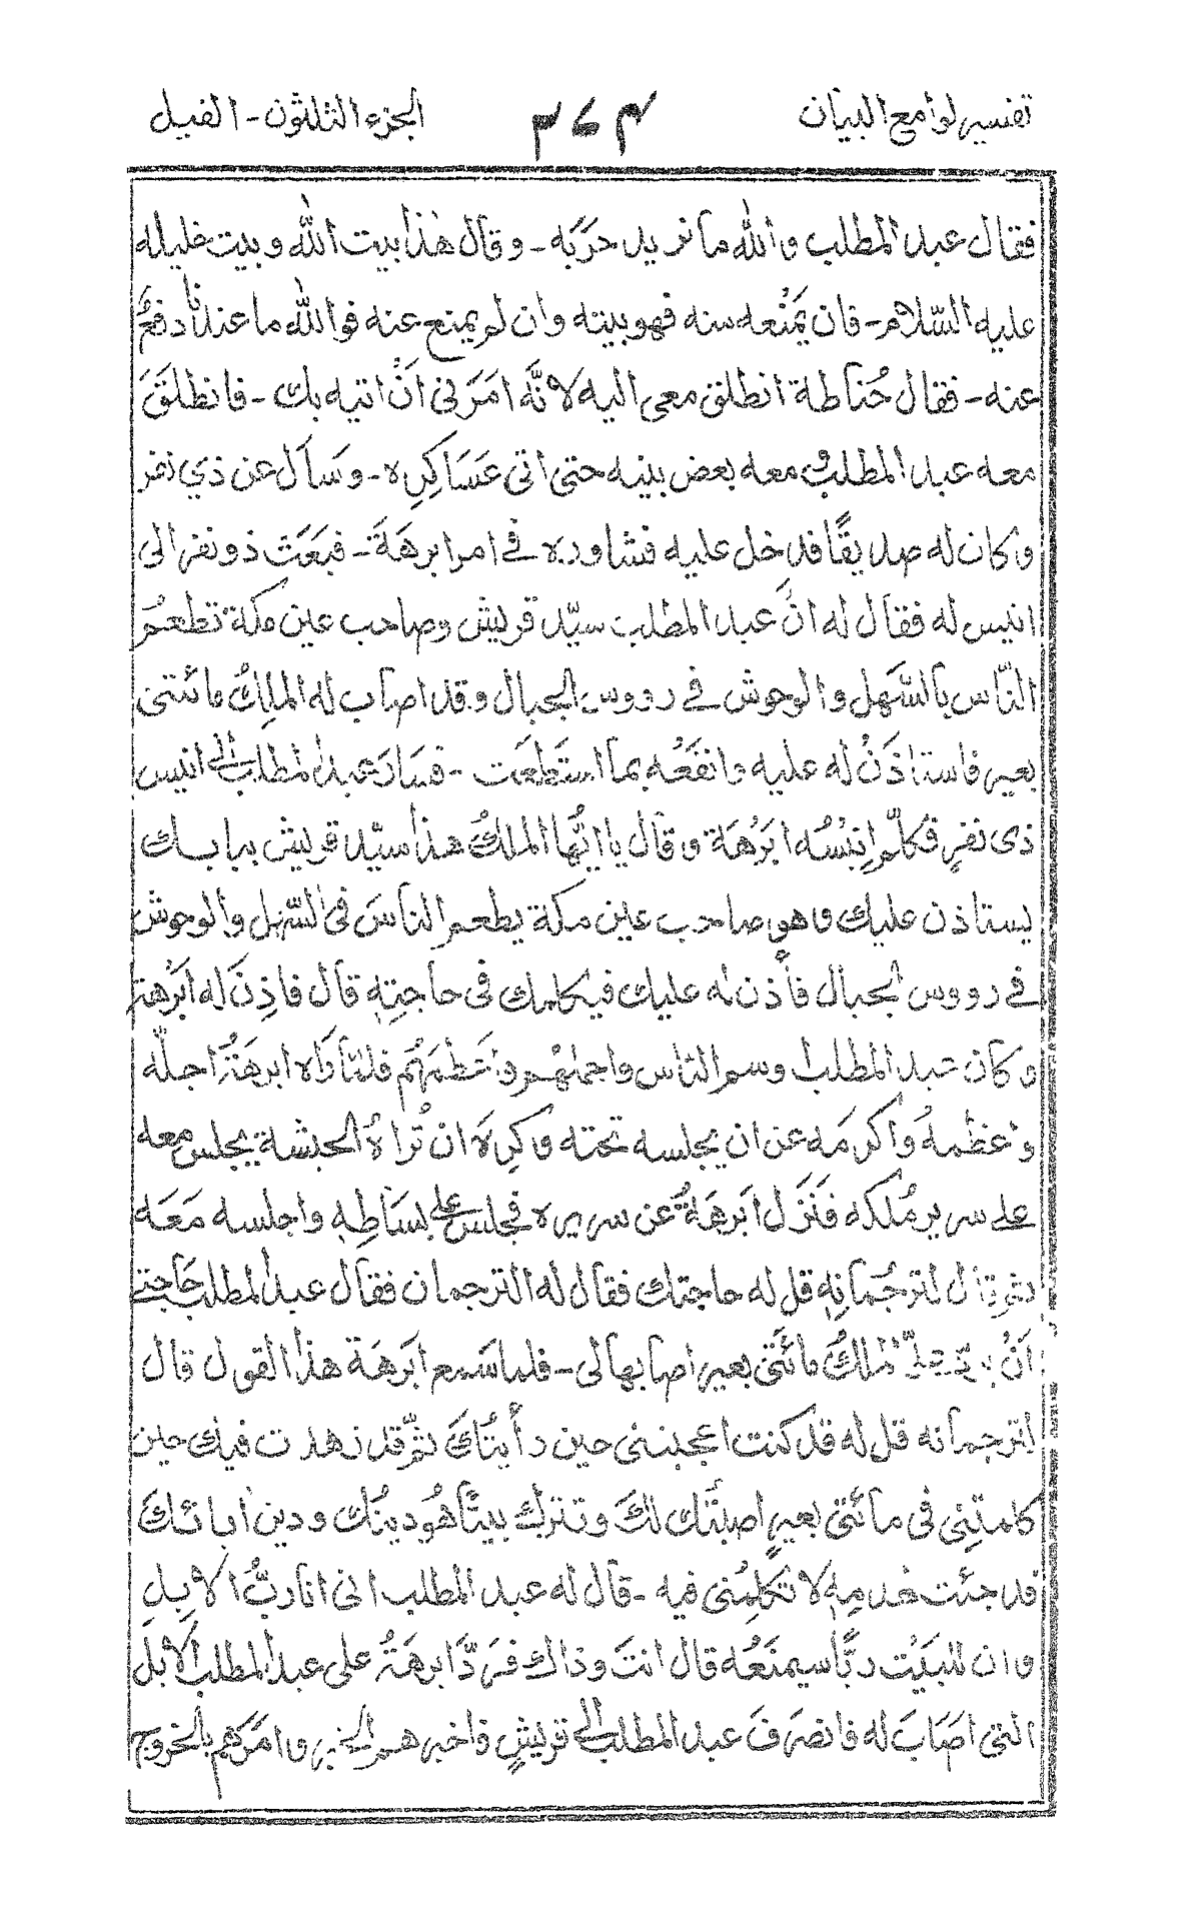 تفسير لوامع البيان ٣٧٣ الجزء الثلثون - الفيل
فقال عبد المطلب والله ما نريد حَرَبَه - وقال هذا بيت الله وبيت خليله
عليه السّلام - فان يَمْنَعه منه فهو بيته وان لم يمنع عنه فوالله ما عندنا دفعٌ
عنه - فقال حُناطة انطلق معي اليه لانَّه امَرَني انْ اتيه بك - فانطلَقَ
معه عبد المطلب و معه بعض بنيه حتى اتى عَسَاكِرِه - وسَاَل عن ذي نفر
وكان له صديقًا فدخل عليه فشاوره في امر ابرهَةَ - فبَعَث ذو نفر الى
انيس له فقال له انَّ عبد المطلب سيّد قريش وصاحب عين مكة تطعمُ
النّاس بالسَّهل والوحوش في رووس الجبال وقد اصاب له الملِكُ مائتى
بعير فاستاذَنْ له عليه وانفَعُه بما استَطَعَت - فسَارَ عبد المطلب الى انيس
ذى نفرٍ فكلّم اِنيْسُه ابَرْهَة وقال يا ايُّها الملكُ هذا سيّد قريش ببابك
يستاذن عليك وهو صاحب عين مكة يطعم الناسَ فى السّهل والوحوش
في رووس الجبال فأذن له عليك فيكلمك فى حاجتِهٖ قال فاذِنَ له ابَرْهة
وكان عبد المطلب اوسم النّاس واجملهُم واَعظمَهُم فلمّا رَاه ابرهَةُ اجلّه
واعظمهُ واكرمَه عن ان يجلسه تحته وكرِهَ ان تُراهُ الحبشة يجلس معه
على سرير مُلكه فَنَزَل ابَرهةُ عن سريره فجلس على بسَاطِهٖ واجلسه مَعَه
ثم قال لترجُمانِهٖ قل له حاجتك فقال له الترجمان فقال عبد المطلب حَاجتى
اَنْ يردّ علىّ الملكُ مائَتى بعير اصابها لى - فلما سَمع ابَرهَة هذا القول قال
لترجمانه قل له قد كنت اعجبتنى حين رأيتُكَ ثمّ قد زهدت فيك حين
كلمتِنى فى مائتى بعيرٍ اصبتُها لك وتترك بيتًا هُو دينُك ودين اٰبائك
قد جئت لهدمِهٖ لا تكلِّمُنى فيه - قال له عبد المطلب انى انا ربُّ الابلِ
وان للبَيْت ربًّا سيمنَعُه قال انتَ وذاك فرَدَّ ابرهَةُ على عبد المطلب الابلَ
التى اصَابَ له فانصَرفَ عبد المطلب الى قريشٍ فاخبرهم الخبر وامَرَهُم بالخروج